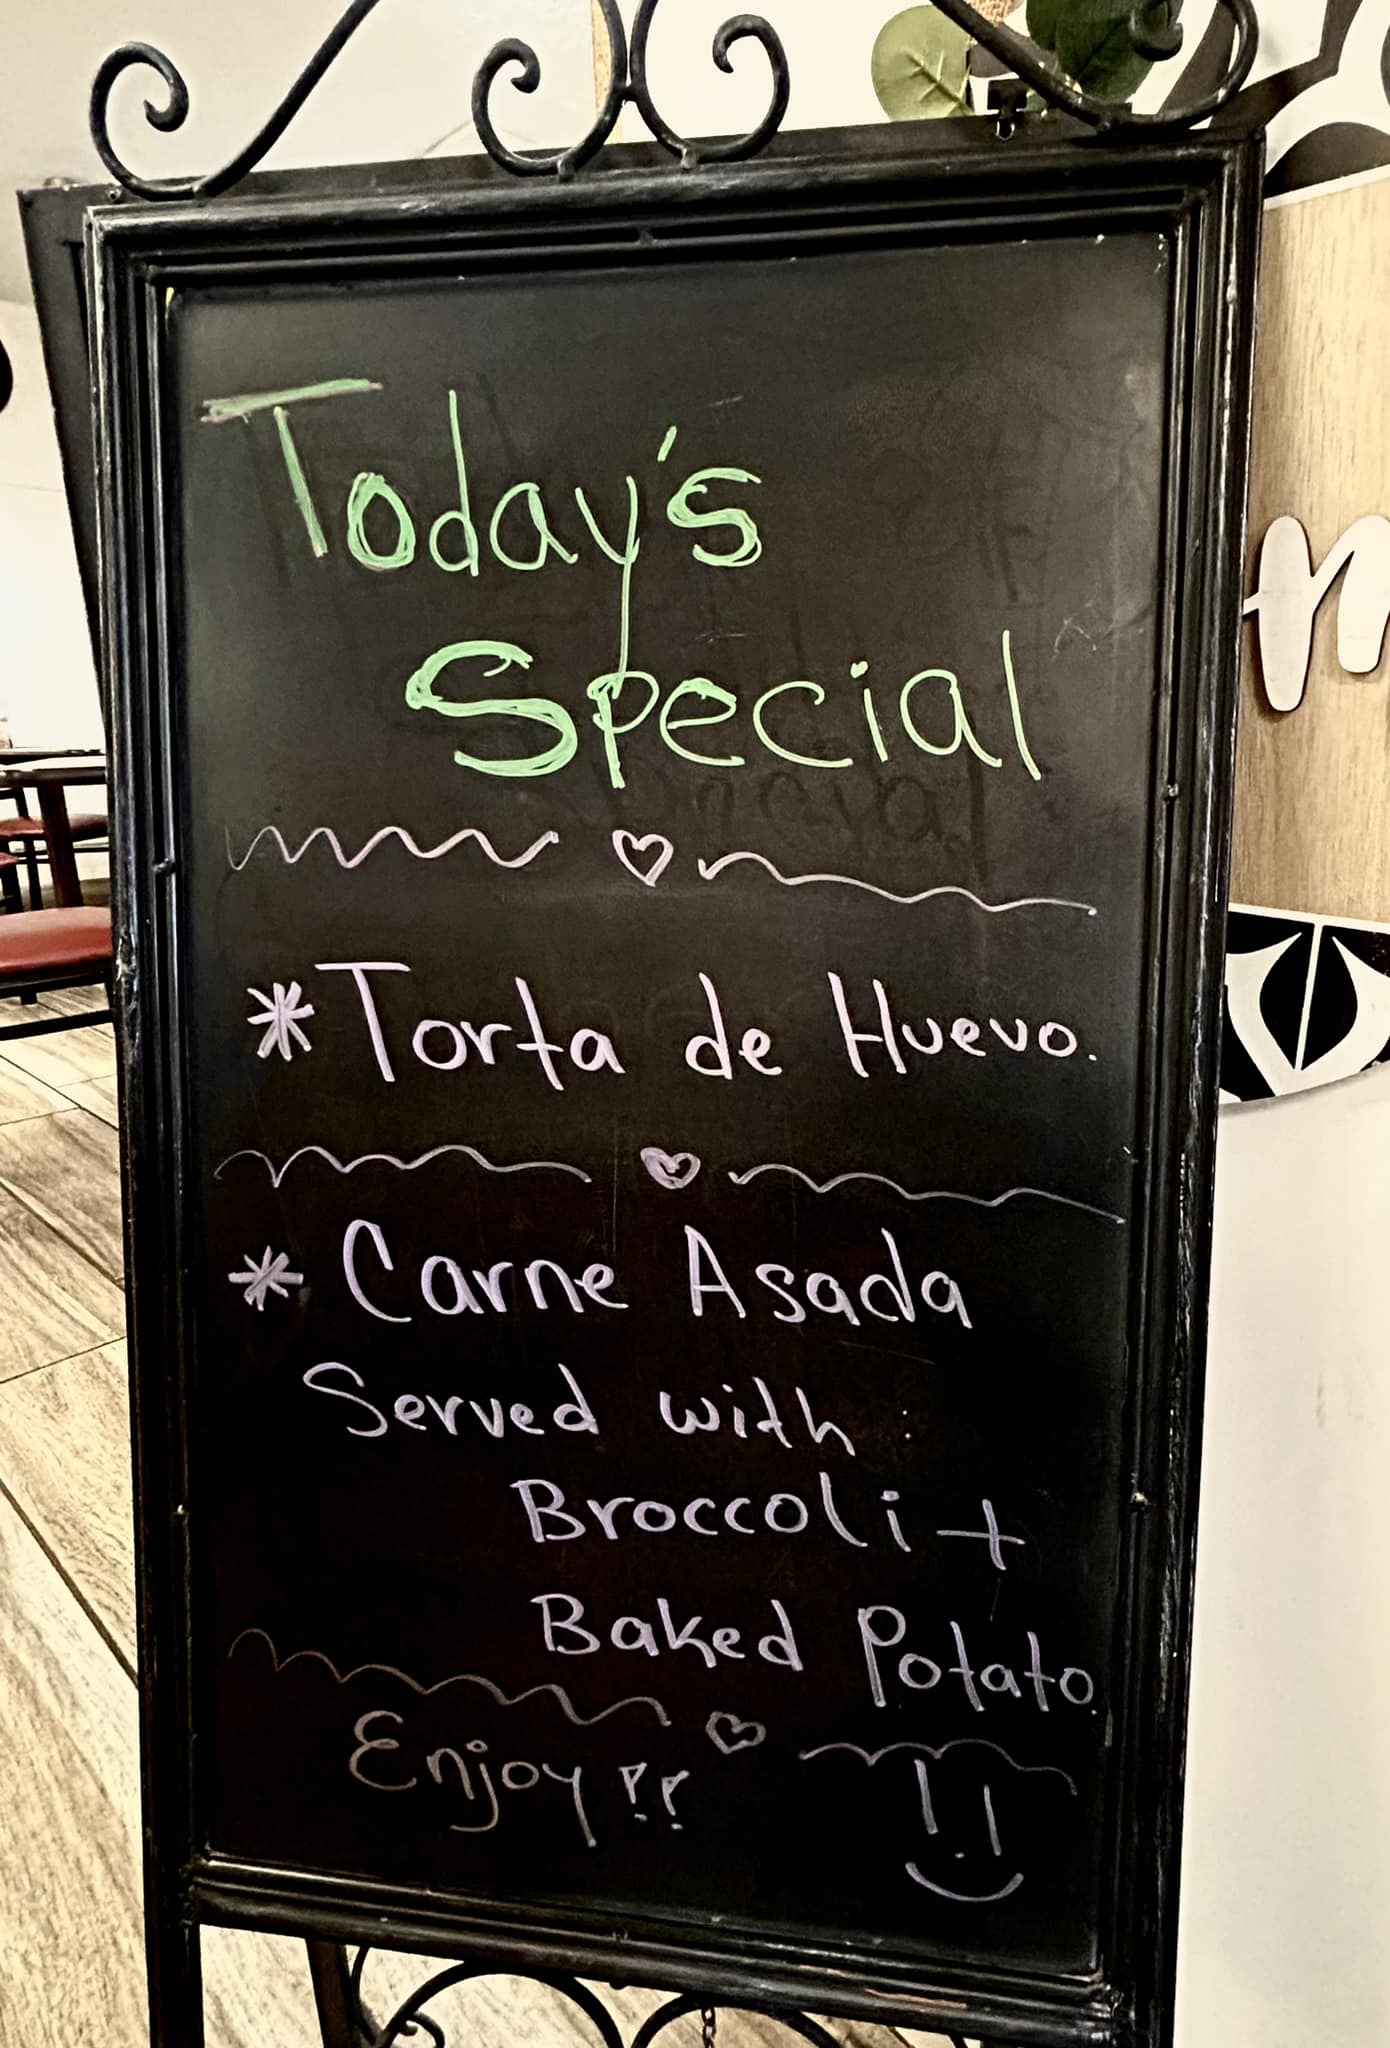 Today's
Special
* Torta de Huevo.
* Carne Asada
Served with:
Broccoli +
Baked Potato.
Enjoy!!